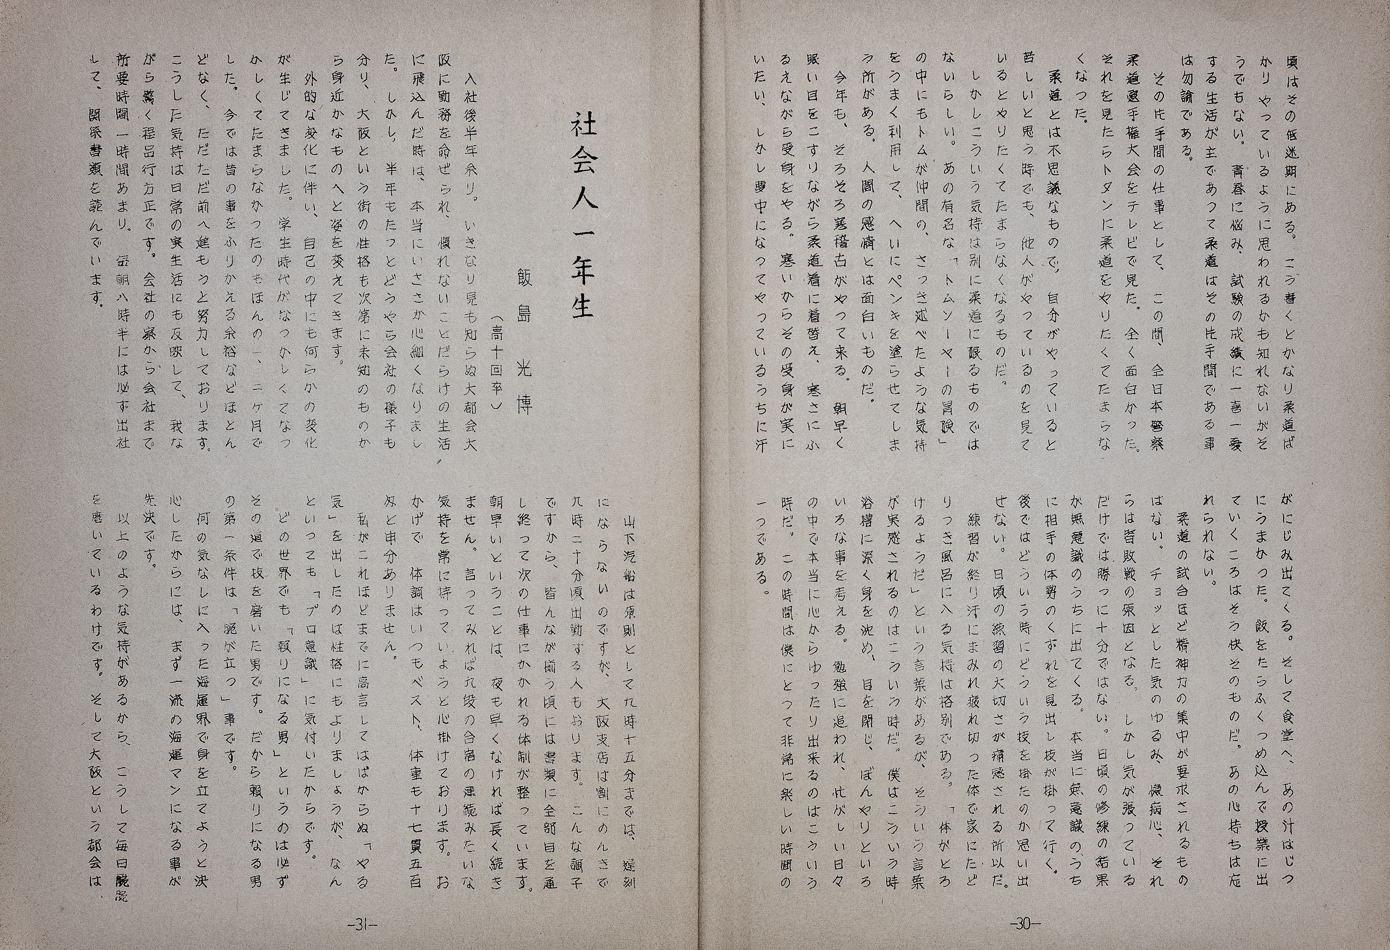 頃はその低迷期にある。こう書くとかなり柔道ば
かりやっているように思われるかも知れないがそ
うでもない。青春に悩み、試験の成績に一喜一憂
する生活が主であつて柔道はその片手間である事
は勿論である。
その片手間の仕事として、この間、全日本警察
柔道選手権大会をテレビで見た。全く面白かった。
それを見たらトタンに柔道をやりたくてたまらな
くなつた。
柔道とは不思議なもので、自分がやっていると
苦しいと思う時でも、他人がやっているのを見て
いるとやりたくてたまらなくなるものだ。
しかしこういう気持は別に柔道に限るものでは
ないらしい。あの有名な「トムソーヤーの冒険」
の中にもトムが仲間の、さっき述べたような気持
をうまく利用して、へいにペンキを塗らせてしま
う所がある。人間の感情とは面白いものだ。
今年も、そろそろ寒稽古がやつて来る。朝早く
眠い目をこすりながら柔道着に着替え、寒さにふ
るえながら受身をやる。寒いからその受身が実に
いたい、しかし夢中になつてやつているうちに汗
がにじみ出てくる。そして食堂へ、あの汁はじつ
にうまかつた。飯をたらふくつめ込んで授業に出
ていくころはそう快そのものだ。あの心持ちは忘
れられない。
柔道の試合ほど精神力の集中が要求されるもの
はない。チョッとした気のゆるみ、臆病心、それ
らは皆敗戦の原因となる。しかし気が張つている
だけでは勝つに十分ではない。日頃の修練の結果
が無意識のうちに出てくる。本当に無意識のうち
に相手の体勢のくずれを見出し技が掛って行く。
後ではどういう時にどういう技を掛たのか思い出
せない。日頃の練習の大切さが痛感される所以だ。
練習が終り汗にまみれ疲れ切つた体で家にたど
りつき風呂に入る気持は格別である。「体がとろ
けるようだ」という言葉があるが、そういう言葉
が実感されるのはこういう時だ。僕はこういう時
浴槽に深く身を沈め、目を閉じ、ぼんやりといろ
いろな事を考える。勉強に追われ、忙がしい日々
の中で本当に心からゆったり出来るのはこういう
時だ。この時間は僕にとつて非常に楽しい時間の
一つである。
—30—
社会人一年生
飯島光博
（高十回卒）
入社後半年余り。いきなり見も知らぬ大都会大
阪に勤務を命ぜられ、慣れないことだらけの生活
に飛込んだ時は、本当にいささか心細くなりまし
た。しかし、半年もたつとどうやら会社の様子も
分り、大阪という街の性格も次第に未知のものか
ら身近かなものへと姿を変えてきます。
外的な変化に伴い、自己の中にも何らかの変化
が生じてきました。学生時代がなつかしくてなつ
かしくてたまらなかったのもほんの一、二ヶ月で
した。今では昔の事をふりかえる余裕などほとん
どなく、ただただ前へ進もうと努力しております。
こうした気持は日常の実生活にも反映して、我な
がら驚く程品行方正です。会社の寮から会社まで
所要時間一時間あまり。毎朝八時半には必ず出社
して、関係書類を読んでいます。
山下汽船は原則として九時十五分までは、遅刻
にならないのですが、大阪支店は割にのんきで
九時二十分頃出勤する人もおります。こんな調子
ですから、皆んなが揃う頃には書類に全部目を通
し終って次の仕事にかかれる体制が整っています。
朝早いということは、夜も早くなければ長く続き
ません。言ってみれば九段の合宿の連続みたいな
気持を常に持っていようと心掛けております。お
かげで、体調はいつもベスト、体重も十七貫五百
匁と申分ありません。
私がこれほどまでに高言してはばからぬ「やる
気」を出したのは性格にもよりましょうが、なん
といっても「プロ意識」に気付いたからです。
どの世界でも「頼りになる男」というのは必ず
その道で技を磨いた男です。だから頼りになる男
の第一条件は「腕が立つ」事です。
何の気なしに入った海運界で身を立てようと決
心したからには、まず一流の海運マンになる事が
先決です。
以上のような気持があるから、こうして毎日腕
を磨いているわけです。そして大阪という都会は
—31—